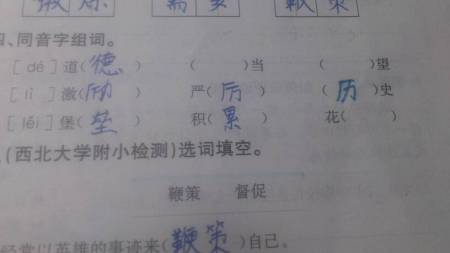 锻炼 需要 鞭策
四、同音字组词。
[dé]道(德) ( )当 ( )望
[lì]激(励) 严(厉) (历)史
[lěi]堡(垒) 积(累) 花( )
(西北大学附小检测)选词填空。
鞭策 督促
经常以英雄的事迹来(鞭策)自己。